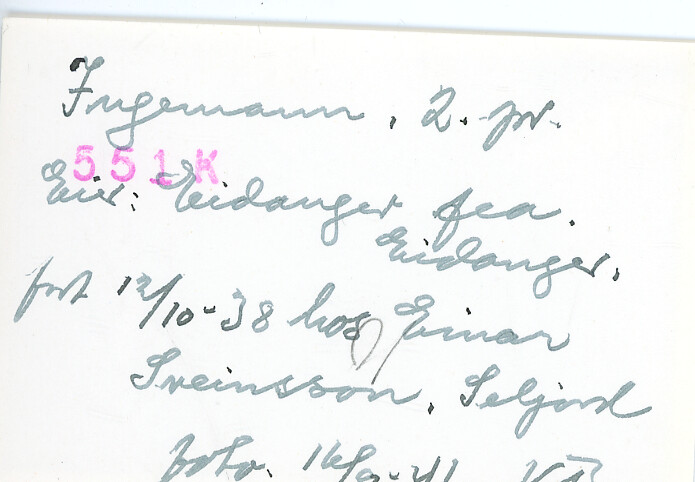 Ingemann, 2. pr.
551K
Eier: Eidanger fea.
Eidanger.
født 12/10-38 hos Einar
Sveinsson, Seljord
foto.